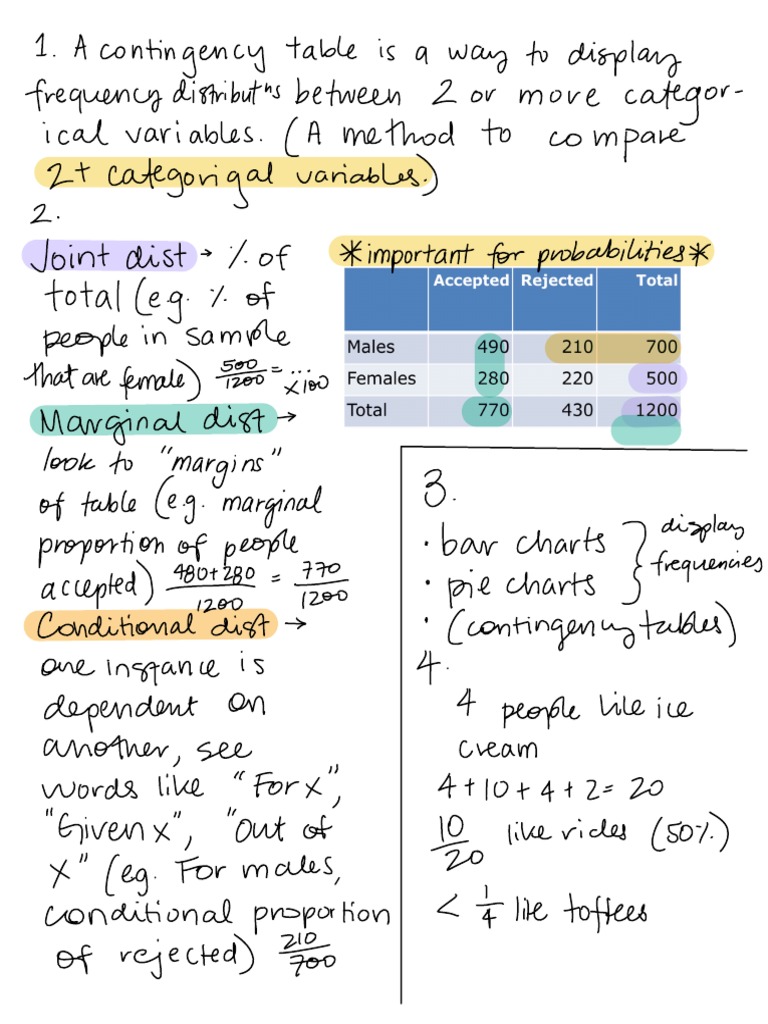 1. A contingency table is a way to display
frequency distributns between 2 or more categor-
ical variables. (A method to compare
2+ categorigal variables.)
2.
Joint dist → % of
total (e.g. % of
people in sample
that are female) 500/1200 = ... x100
Marginal dist →
look to "margins"
of table (e.g. marginal
proportion of people
accepted) 480+280/1200 = 770/1200
Conditional dist →
one instance is
dependent on
another, see
words like "For x",
"Given x", "out of
x" (eg. For males,
conditional proportion
of rejected) 210/700
*important for probabilities*
Accepted Rejected Total
Males 490 210 700
Females 280 220 500
Total 770 430 1200
3.
• bar charts
• pie charts
} display
frequencies
• (contingency tables)
4.
4 people like ice
cream
4+10+4+2=20
10/20 like rides (50%)
< 1/4 like toffees